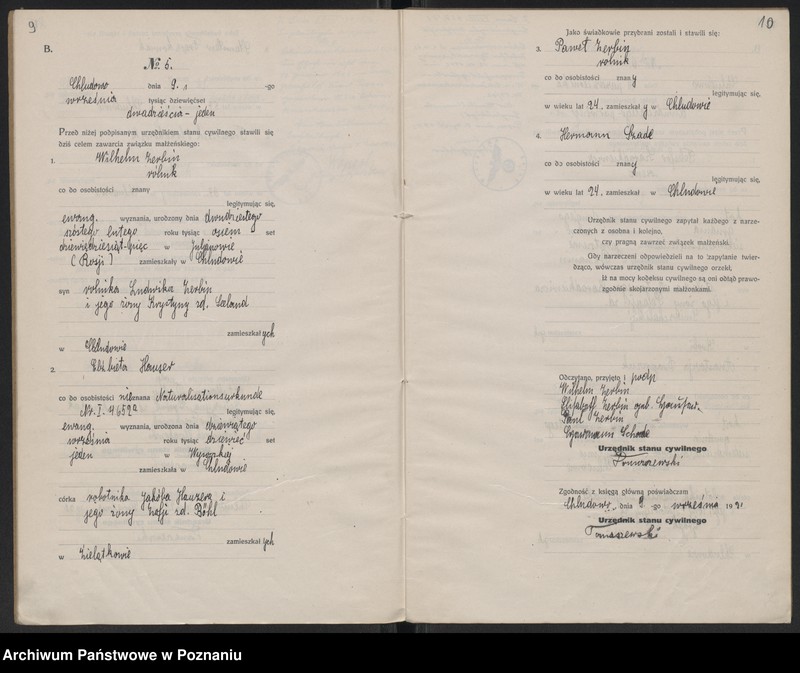 9
B.
No 6.
Chludowo dnia 9. -go
września tysiąc dziewięćset
dwadzieścia - jeden
Przed niżej podpisanym urzędnikiem stanu cywilnego stawili się
dziś celem zawarcia związku małżeńskiego:
1. Wilhelm Zerbin
rolnik
co do osobistości znany
legitymując się,
ewang. wyznania, urodzony dnia dwudziestego
szóstego lutego roku tysiąc osiem set
dziewięćdziesiąt-pięc w Juljanowie
(Rosji) zamieszkały w Chludowie
syn rolnika Ludwika Zerbin
i jego żony Krystyny zd.
zamieszkałych
w Chludowie
2. Elżbieta Hauser
co do osobistości nieznana Naturalisationsurkunde
Nr. I. 4652a legitymując się,
ewang. wyznania, urodzona dnia dziewiątego
września roku tysiąc dziewięć set
jeden w
zamieszkała w Chludowie
córka robotnika Jakóba Hausera i
jego żony Zofji zd. Böhl
zamieszkałych
w Zielątkowie
10
Jako świadkowie przybrani zostali i stawili się:
3. Paweł Zerbin
rolnik
co do osobistości znany
legitymując się,
w wieku lat 24, zamieszkały w Chludowie
4. Hermann Szade
co do osobistości znany
legitymując się,
w wieku lat 24, zamieszkał w Chludowie
Urzędnik stanu cywilnego zapytał każdego z narze-
czonych z osobna i kolejno,
czy pragną zawrzeć związek małżeński.
Gdy narzeczeni odpowiedzieli na to zapytanie twier-
dząco, wówczas urzędnik stanu cywilnego orzekł,
iż na mocy kodeksu cywilnego są oni odtąd prawo-
zgodnie skojarzonymi małżonkami.
Odczytano, przyjęto i podp
Wilhelm Zerbin
Elisabeth Zerbin geb. Hauser
Paul Zerbin
Herrmann Schade
Urzędnik stanu cywilnego
Tomaszewski
Zgodność z księgą główną poświadczam
Chludowo, dnia 9 -go września 1921
Urzędnik stanu cywilnego
Tomaszewski
Archiwum Państwowe w Poznaniu